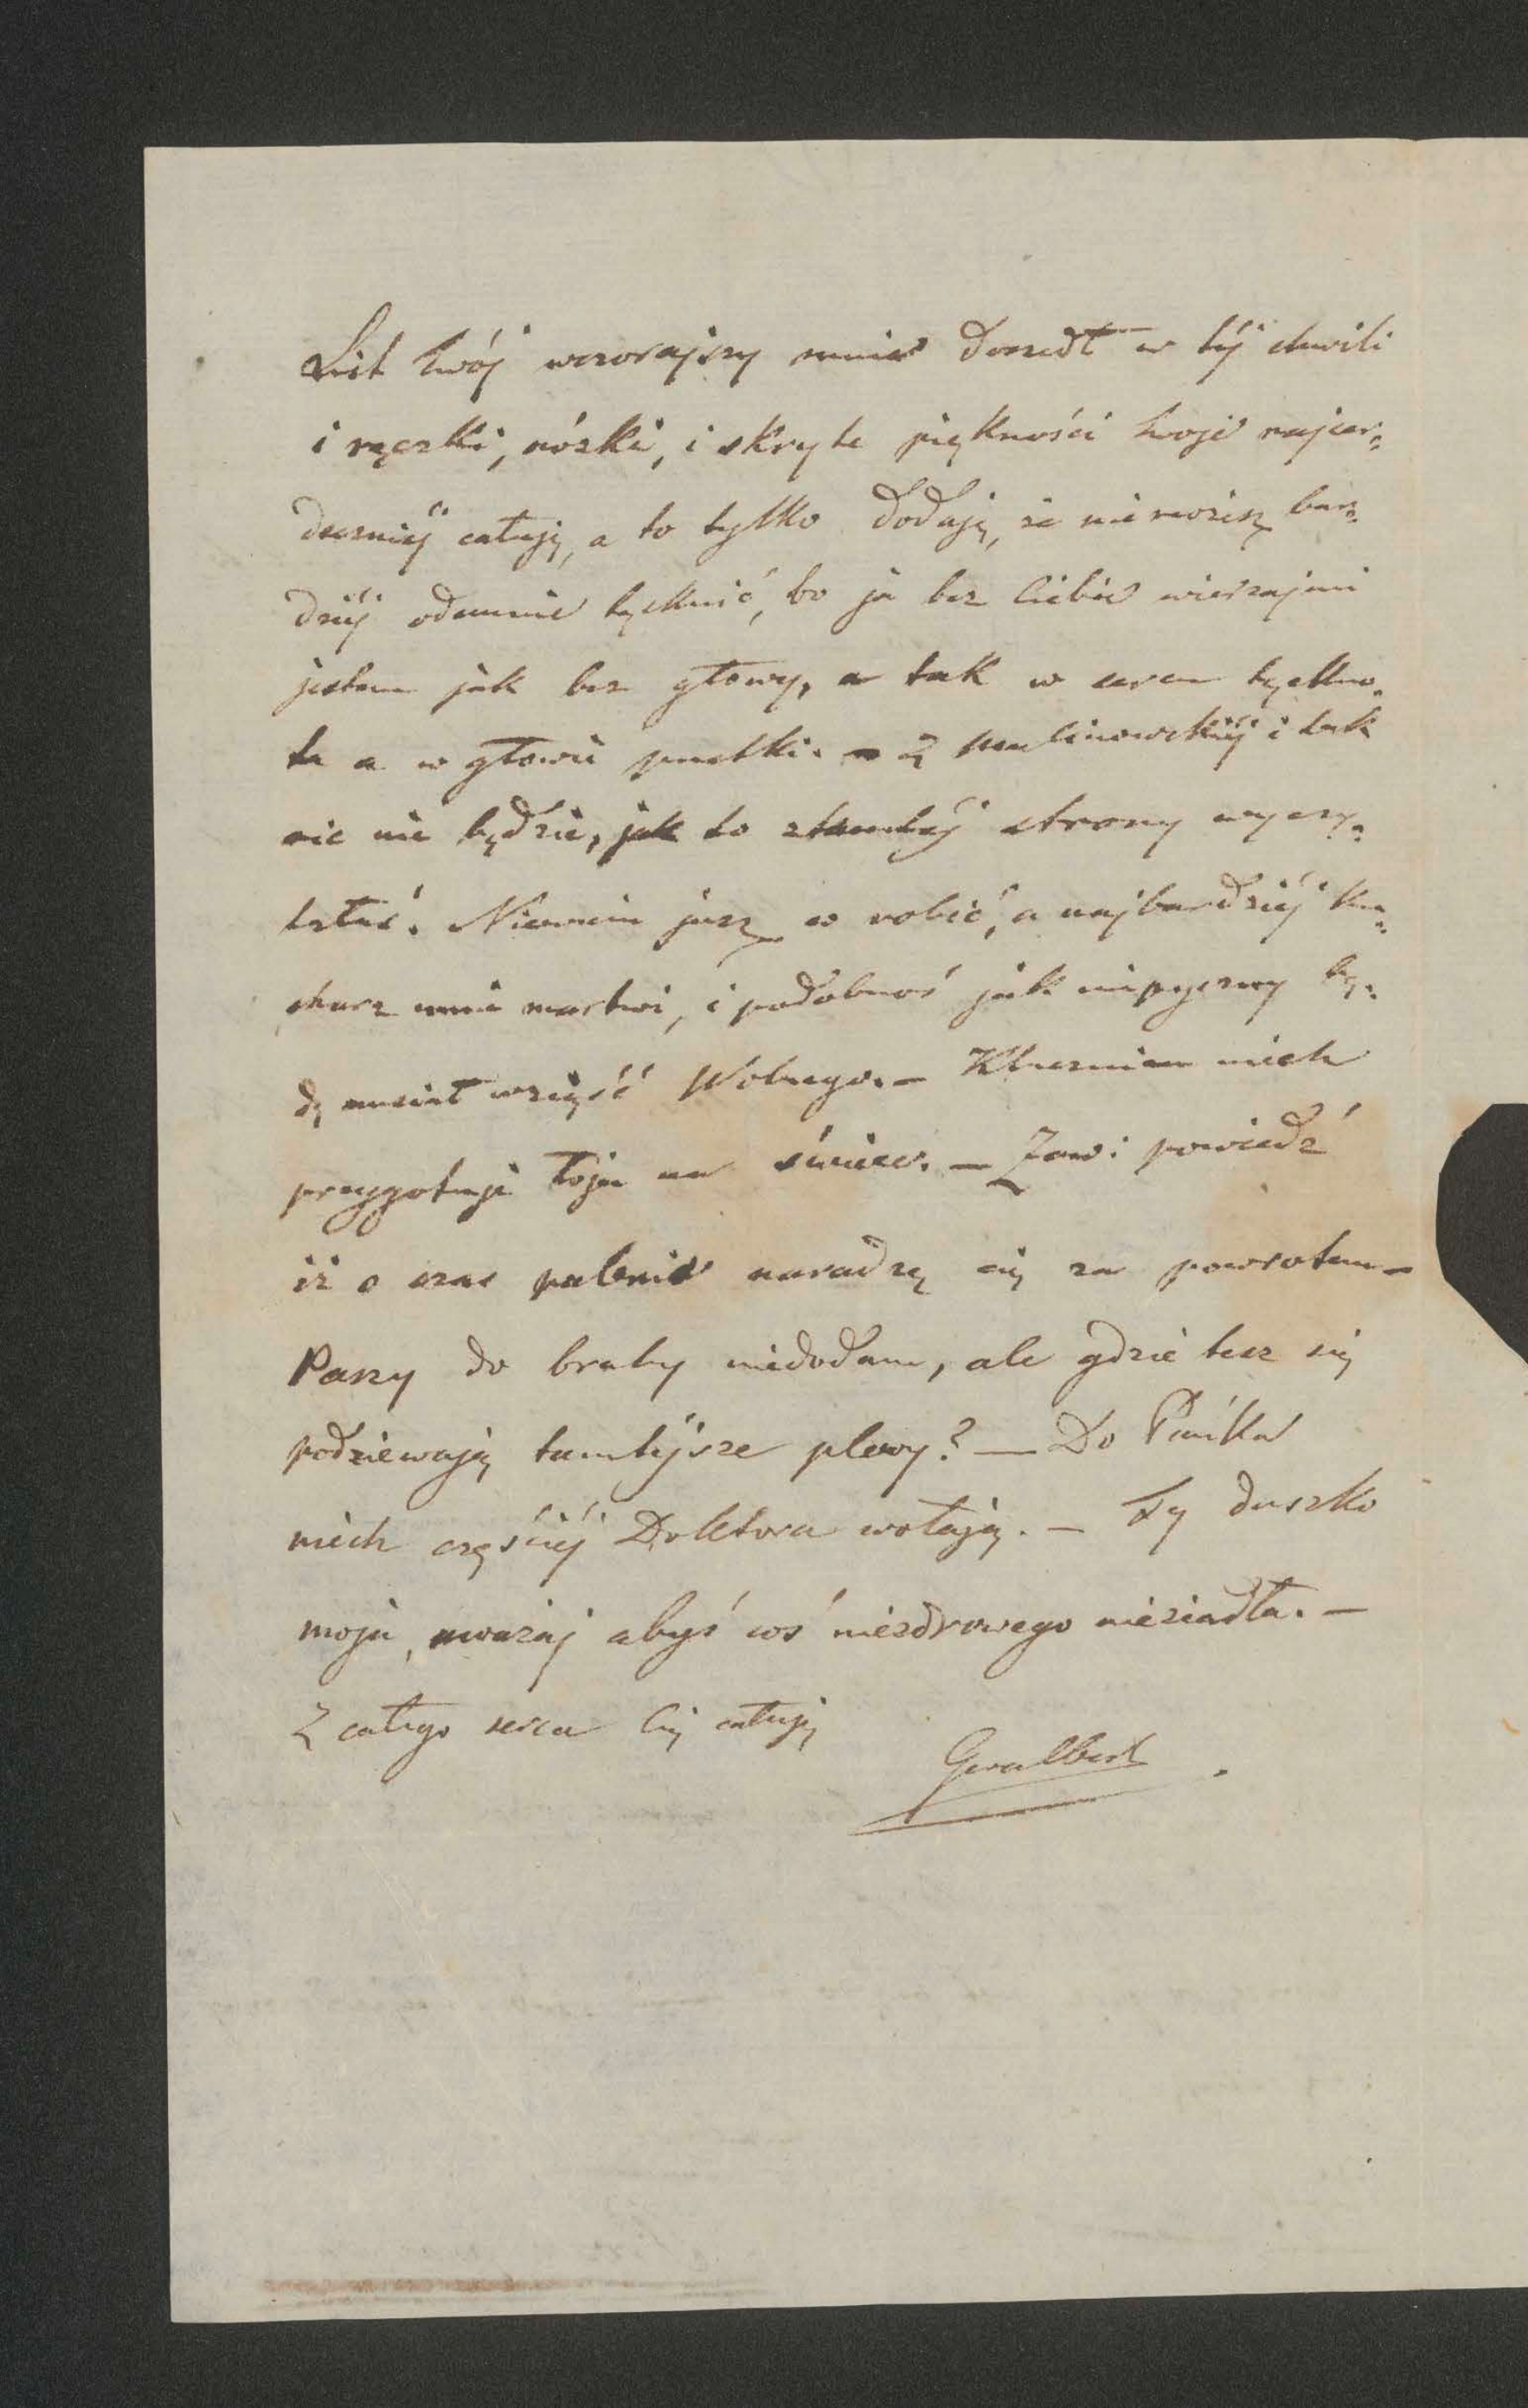 List twój wczorajszy mnie doszedł w téj chwili
i rączki, nóżki, i skryte piękności twoje najser=
deczniéj całuję, a to tylko dodaję, że nie możesz bar=
dziéj odemnie tęsknić, bo ja bez Ciebie wierzaj mi
jestem jak bez głowy, a tak w sercu tęskno=
ta a w głowie pustki. – Z Malinowskiéj i tak
nic nie będzie, jak to z tamtéj strony wyczy=
tałaś. Niewiem jusz co robić, a najbardziéj ku=
charz mnie martwi, i podobnoś jak bę=
dę musiał wziąść Wolnego. – niech
przygotuje łoju na świéce. – powiedź
iż o czas palenia naradzę się za powrotem –
Paszy do brahy niedodam, ale gdzie tesz się
podziewają tamtéjsze plewy? – Do
niech częściéj Doktora wołają. – Ty duszko
moja, uważaj abyś coś niezdrowego nieziadła. –
Z całego serca Cię całuję
Gwalbert